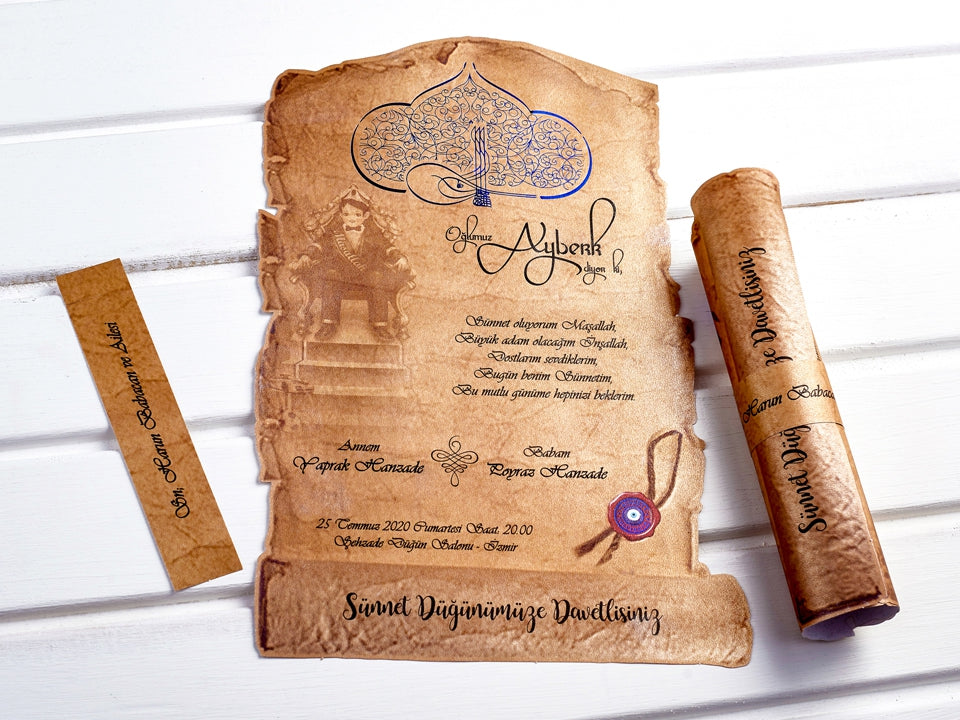 Oğlumuz
Ayberk
diyor ki,
Maşallah
Sünnet oluyorum Maşallah,
Büyük adam olacağım İnşallah,
Dostlarım sevdiklerim,
Bugün benim Sünnetim,
Bu mutlu günüme hepinizi beklerim.
Annem
Yaprak Hanzade
Babam
Poyraz Hanzade
25 Temmuz 2020 Cumartesi Saat: 20.00
Şehzade Düğün Salonu - İzmir
Sünnet Düğünümüze Davetlisiniz
Sn; Harun Babacan ve Ailesi
Sünnet Düğ
ze Davetlisiniz
Harun Babaca